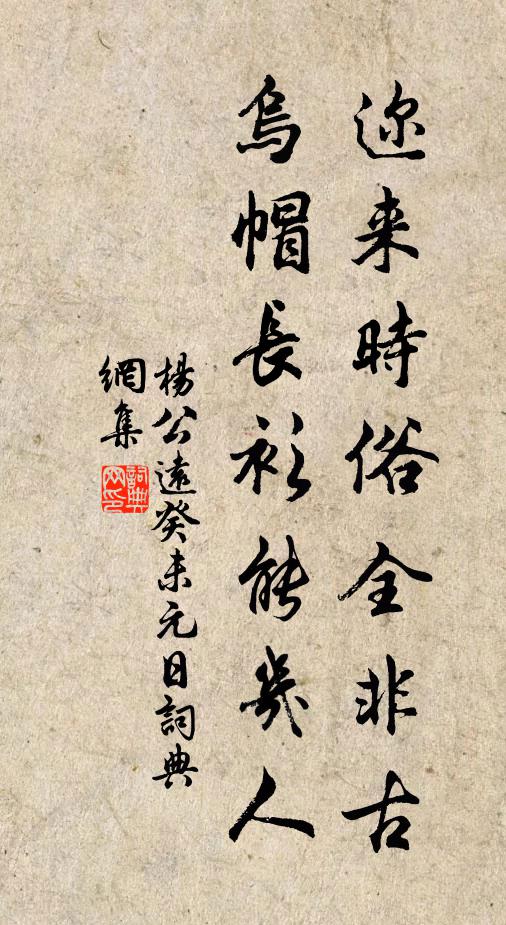 迩来時俗全非古
烏帽長衫能幾人
楊公遠癸未元日詞典
網集
詞典網印